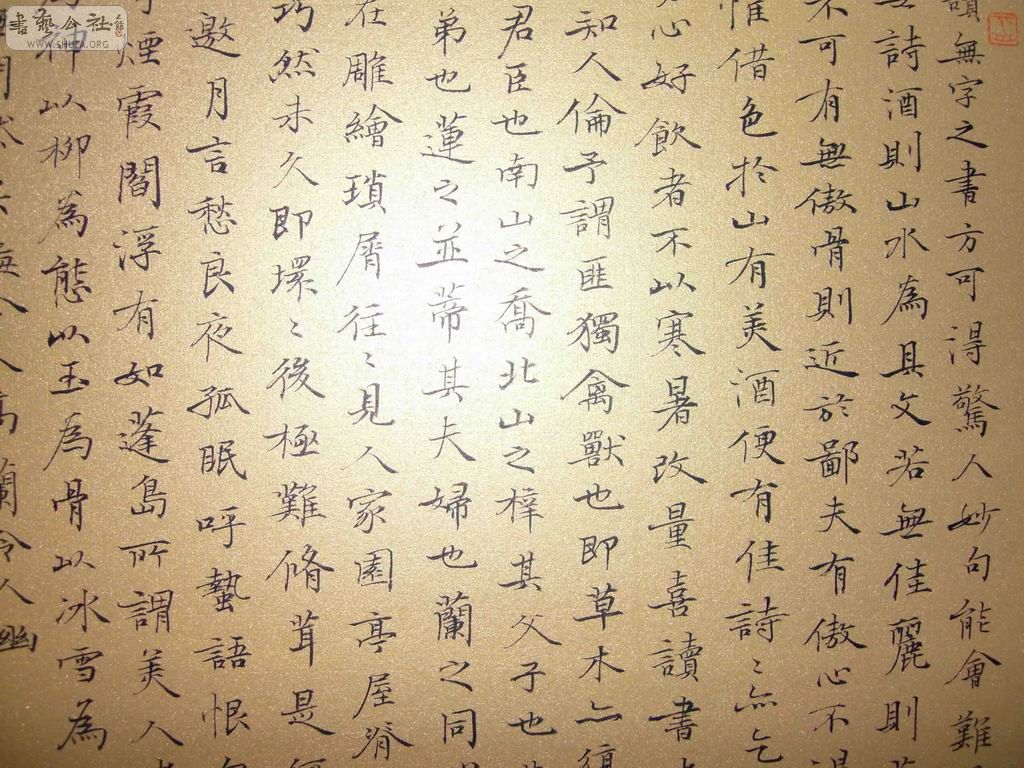 讀無字之書方可得驚人妙句能會難
無詩酒則山水為具文若無佳麗則
不可有無傲骨則近於鄙夫有傲心不得
惟借色於山有美酒便有佳詩〻亦乞
心好飲者不以寒暑改量喜讀書
知人倫予謂匪獨禽獸也即草木亦復
君臣也南山之喬北山之梓其父子也
弟也蓮之並蒂其夫婦也蘭之同
在雕繪瑣屑往〻見人家園亭屋脊
巧然未久即壞〻後極難脩葺是何
邀月言愁良夜孤眠呼蛩語恨
煙霞閻浮有如蓬島所謂美人
神以柳為態以玉為骨以冰雪為
梅令人高蘭令人幽
書藝公社
WWW.SHUFA.ORG